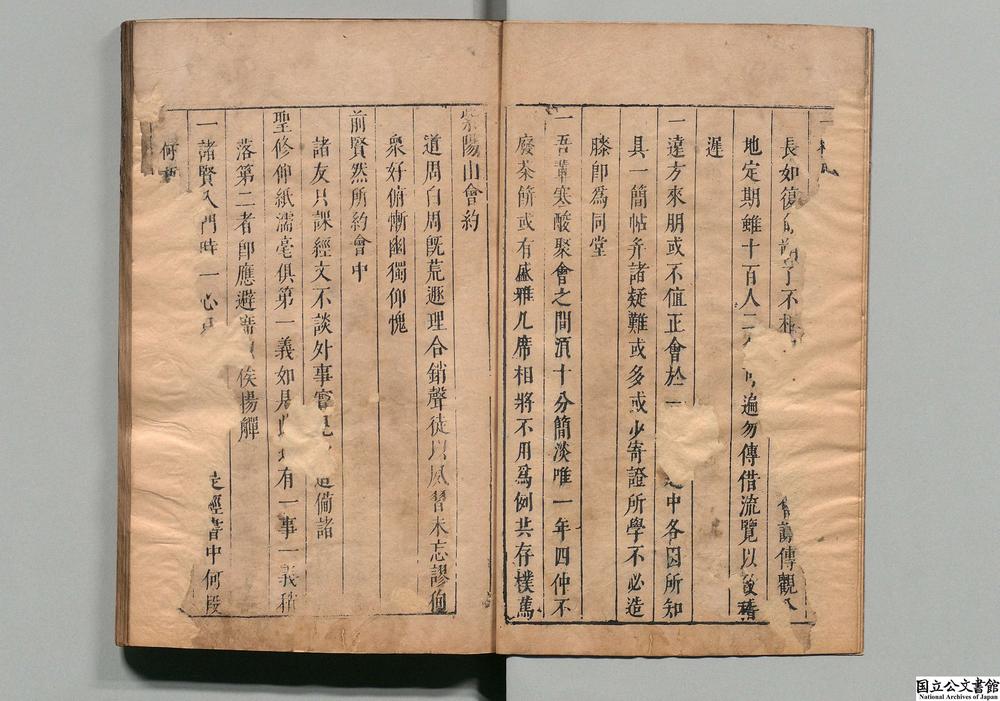 一
長如復不相傳觀
地定期雖十百人二遍勿傳借流覽以致稽
遲
一遠方來朋或不値正會於一中各因所知
具一簡帖幷諸疑難或多或少寄證所學不必造
膝卽爲同堂
一吾輩寒酸聚會之間湏十分簡淡唯一年四仲不
廢茶餅或有盛雅几席相將不用爲例共存樸萬
紫陽山會約
道周白周旣荒遯理合銷聲徒以夙習未忘謬侚
衆好俯慚幽獨仰愧
前賢然所約會中
諸友只課經文不談外事備諸
聖修仰紙濡毫俱第一義如有一事一義稍
落第二者卽應避席以俟揚觶
一諸賢入門時一心經書中何段
何
国立公文書館
National Archives of Japan